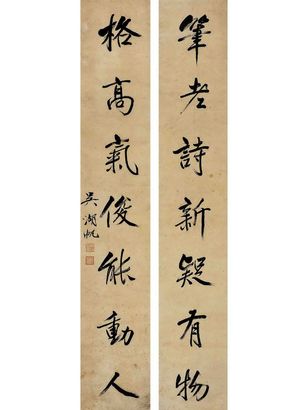 筆老詩新疑有物
格高氣俊能動人
吳湖帆